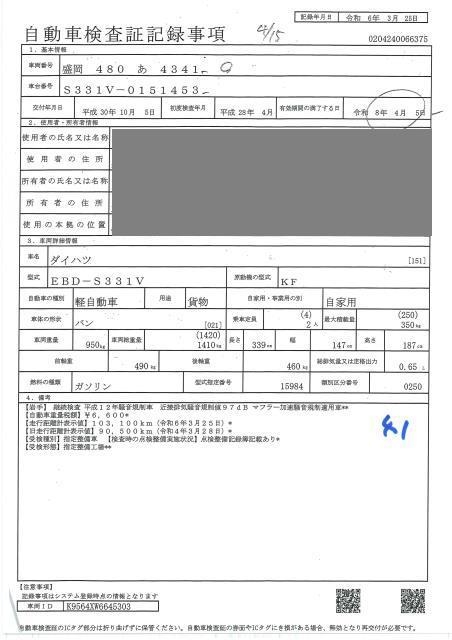 記録年月日 令和 6年 3月 25日
自動車検査証記録事項
4/15
0204240066375
1．基本情報
車両番号 盛岡 480 あ 4341
車台番号 S331V-0151453
交付年月日 平成30年10月 5日 初度検査年月 平成28年 4月 有効期間の満了する日 令和 8年 4月 5日
2．使用者・所有者情報
使用者の氏名又は名称
使用者の住所
所有者の氏名又は名称
所有者の住所
使用の本拠の位置
3．車両詳細情報
車名 ダイハツ [151]
型式 EBD-S331V 原動機の型式 KF
自動車の種別 軽自動車 用途 貨物 自家用・事業用の別 自家用
車体の形状 バン [021] 乗車定員 (4) 2人 最大積載量 (250) 350kg
車両重量 950kg 車両総重量 (1420) 1410kg 長さ 339cm 幅 147cm 高さ 187cm
前軸重 490kg 後軸重 460kg 総排気量又は定格出力 0.65L
燃料の種類 ガソリン 型式指定番号 15984 類別区分番号 0250
4．備考
【岩手】 継続検査 平成12年騒音規制車 近接排気騒音規制値97dB マフラー加速騒音規制適用車**
【自動車重量税額】¥6,600*
【走行距離計表示値】103,100km（令和6年3月25日）*
【旧走行距離計表示値】90,500km（令和4年3月28日）*
【受検種別】指定整備車 【検査時の点検整備実施状況】点検整備記録簿記載あり*
【受検形態】指定整備工場**
【注意事項】
記録事項はシステム登録時点の情報となります
車両ID K9564XW6645303
自動車検査証のICタグ部分は折り曲げずに保管ください。自動車検査証の券面やICタグにき損がある場合、無効となり再交付が必要です。